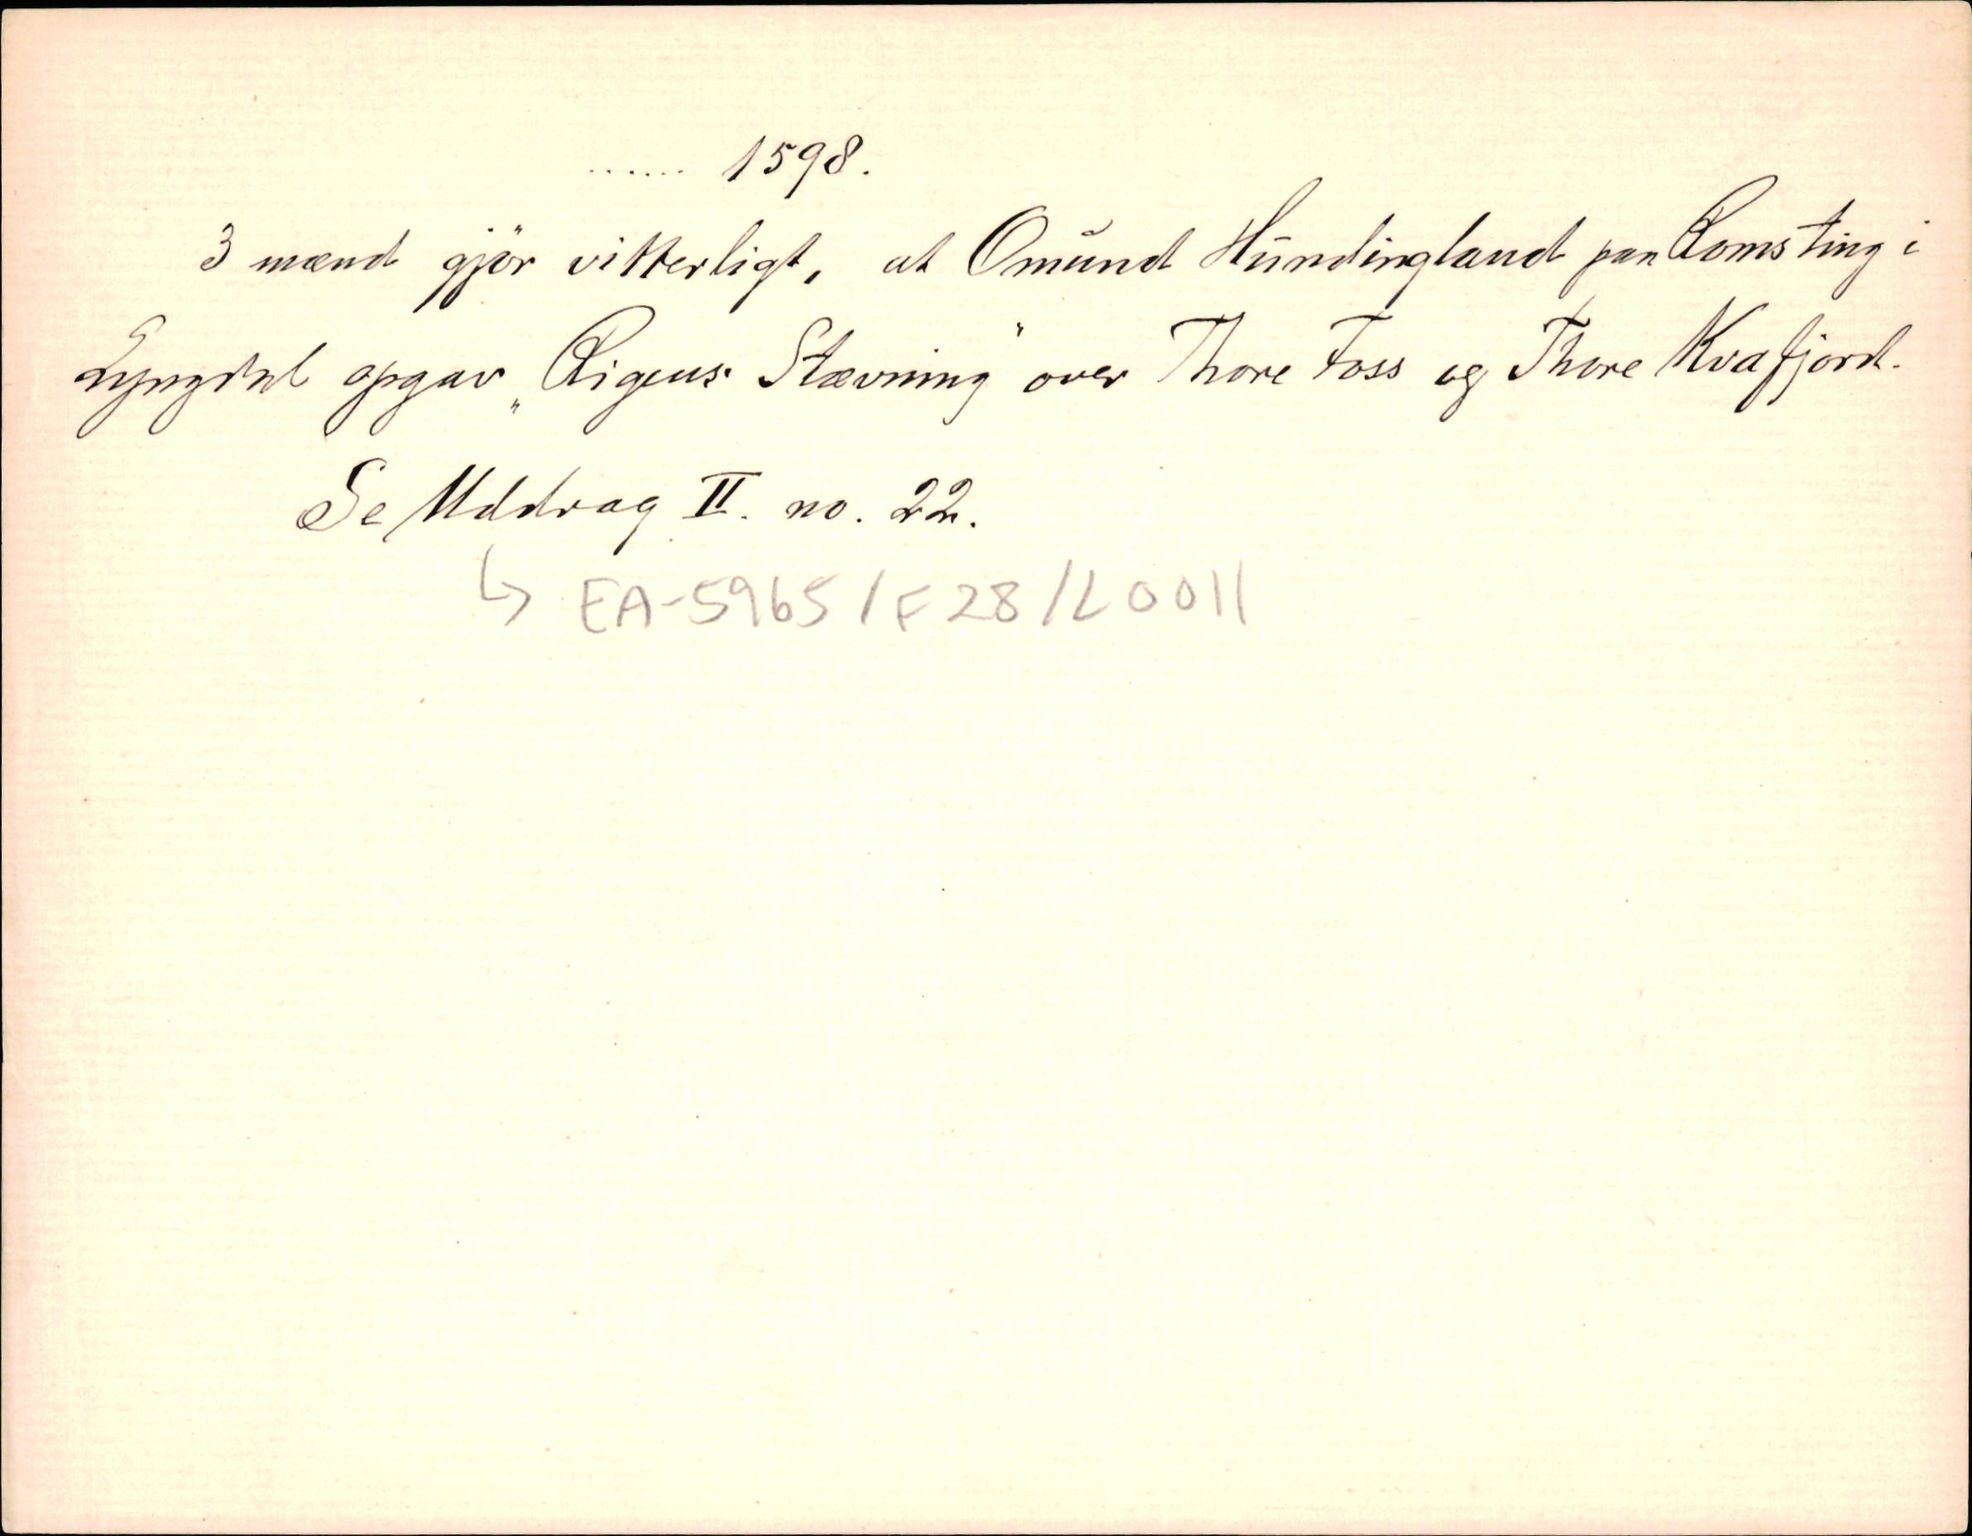 ...... 1598.
3 mænd gjør vitterligt, at Omund Hundingland paa Romsting i
Lyngdal opgav „Rigens Stævning" over Thore Foss og Thore Kvafjord.
Se Uddrag II. no. 22.
↳ EA-5965/F28/L0011